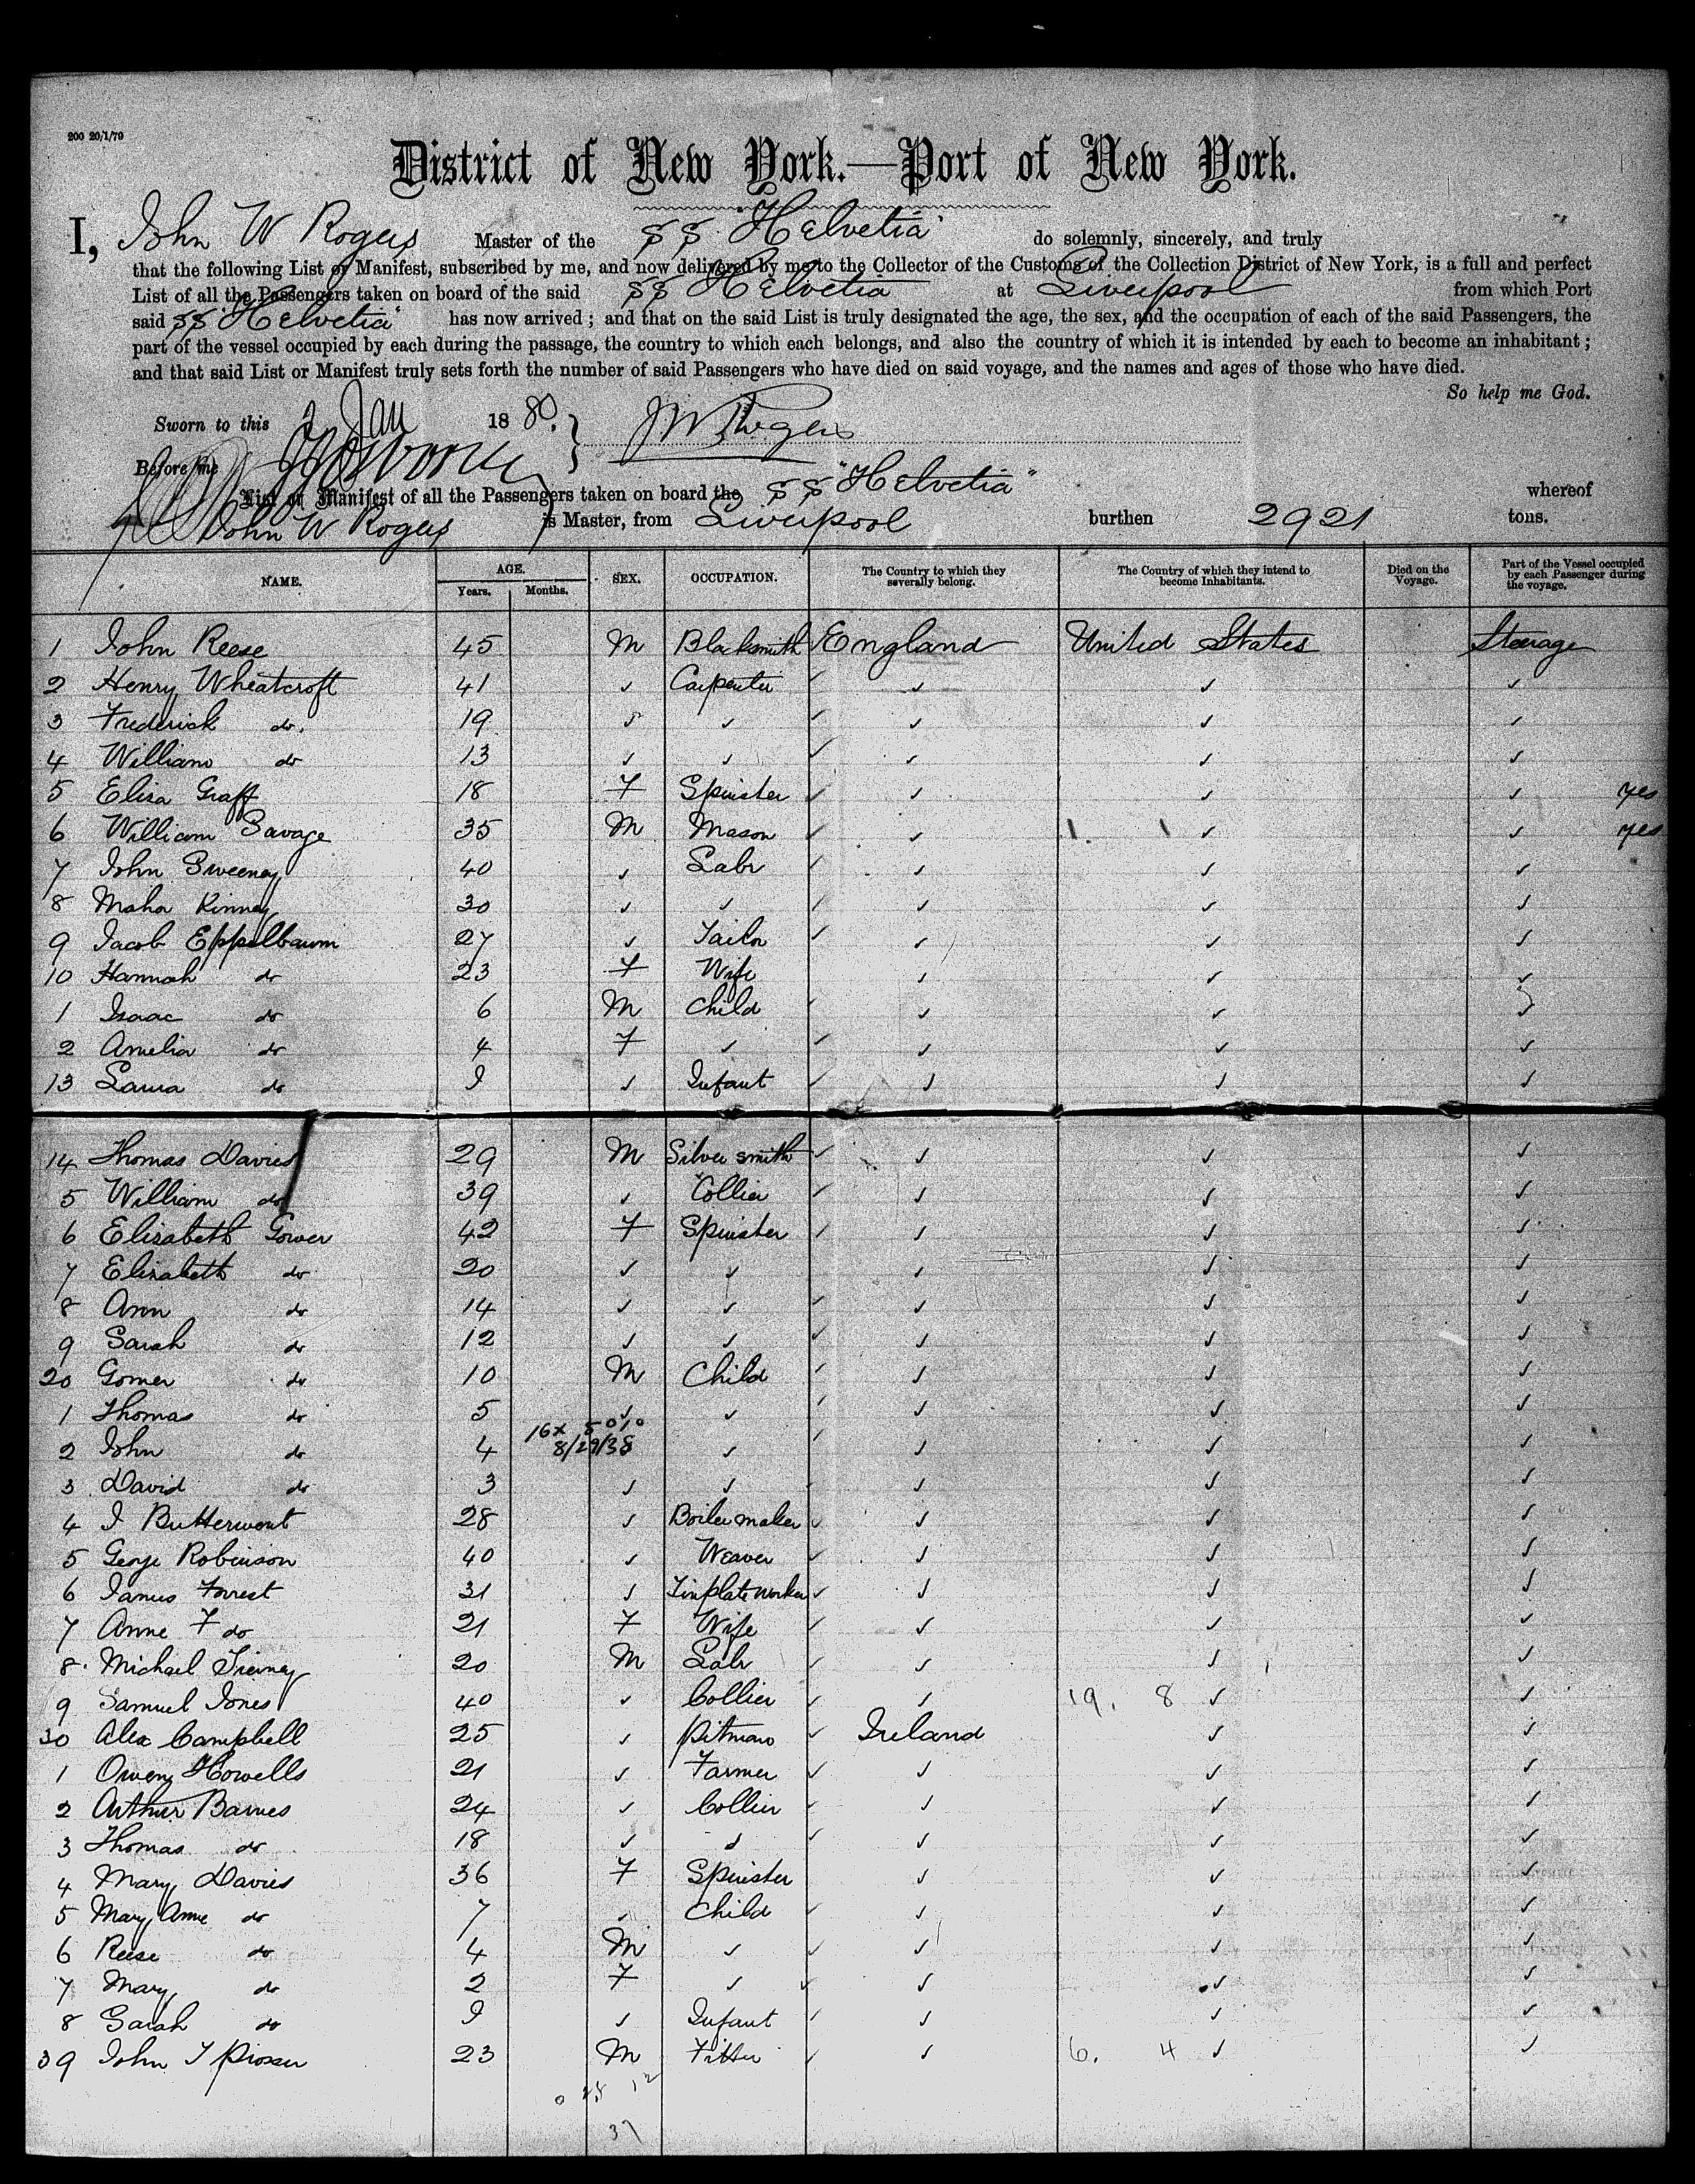 200 20/1/79
District of New York.—Port of New York.
I, John W Rogers Master of the SS "Helvetia" do solemnly, sincerely, and truly
that the following List or Manifest, subscribed by me, and now delivered by me to the Collector of the Customs of the Collection District of New York, is a full and perfect
List of all the Passengers taken on board of the said SS Helvetia at Liverpool from which Port
said SS "Helvetia" has now arrived; and that on the said List is truly designated the age, the sex, and the occupation of each of the said Passengers, the
part of the vessel occupied by each during the passage, the country to which each belongs, and also the country of which it is intended by each to become an inhabitant;
and that said List or Manifest truly sets forth the number of said Passengers who have died on said voyage, and the names and ages of those who have died.
So help me God.
Sworn to this 2 Jan 1880. } JW Rogers
Before me
List or Manifest of all the Passengers taken on board the SS "Helvetia" whereof
John W Rogers is Master, from Liverpool burthen 2921 tons.
NAME. AGE. Years. Months. SEX. OCCUPATION. The Country to which they severally belong. The Country of which they intend to become Inhabitants. Died on the Voyage. Part of the Vessel occupied by each Passenger during the voyage.
1 John Reese 45 M Blacksmith England United States Steerage
2 Henry Wheatcroft 41 ✓ Carpenter ✓ ✓ ✓ ✓
3 Frederick do. 19 ✓ ✓ ✓ ✓ ✓ ✓
4 William do 13 ✓ ✓ ✓ ✓ ✓ ✓
5 Eliza Graff 18 F Spinster ✓ ✓ ✓ ✓ yes
6 William Savage 35 M Mason ✓ ✓ ✓ ✓ yes
7 John Sweeney 40 ✓ Labr ✓ ✓ ✓ ✓
8 Maha Kinney 30 ✓ ✓ ✓ ✓ ✓ ✓
9 Jacob Eppelbaum 27 ✓ Tailor ✓ ✓ ✓ ✓
10 Hannah do 23 F Wife ✓ ✓ ✓
1 Isaac do 6 M Child ✓ ✓ ✓ ✓
2 Amelia do 4 F ✓ ✓ ✓ ✓ ✓
13 Laura do I ✓ Infant ✓ ✓ ✓ ✓
14 Thomas Davies 29 M Silver smith ✓ ✓ ✓ ✓
5 William do 39 ✓ Collier ✓ ✓ ✓ ✓
6 Elizabeth Gower 42 F Spinster ✓ ✓ ✓ ✓
7 Elizabeth do 20 ✓ ✓ ✓ ✓ ✓
8 Ann do 14 ✓ ✓ ✓ ✓ ✓ ✓
9 Sarah do 12 ✓ ✓ ✓ ✓ ✓ ✓
20 Gomer do 10 M Child ✓ ✓ ✓ ✓
1 Thomas do 5 ✓ ✓ ✓ ✓ ✓ ✓
2 John do 4 16x 5010 8/29/38 ✓ ✓ ✓ ✓ ✓
3 David do 3 ✓ ✓ ✓ ✓ ✓ ✓
4 I Butterwort 28 ✓ Boiler maker ✓ ✓ ✓ ✓
5 George Robinson 40 ✓ Weaver ✓ ✓ ✓ ✓
6 James Forrest 31 ✓ Tinplate worker ✓ ✓ ✓ ✓
7 Anne F do 21 F Wife ✓ ✓ ✓ ✓
8 Michael Tierney 20 M Labr ✓ ✓ ✓ ✓
9 Samuel Jones 40 ✓ Collier ✓ ✓ 19. 8 ✓ ✓
30 Alex Campbell 25 ✓ Pitman ✓ Ireland ✓ ✓
1 Owen Howells 21 ✓ Farmer ✓ ✓ ✓ ✓
2 Arthur Barnes 24 ✓ Collier ✓ ✓ ✓ ✓
3 Thomas do 18 ✓ ✓ ✓ ✓ ✓ ✓
4 Mary Davies 36 F Spinster ✓ ✓ ✓
5 Mary Anne do 7 ✓ Child ✓ ✓ ✓ ✓
6 Reese do 4 M ✓ ✓ ✓ ✓ ✓
7 Mary do 2 F ✓ ✓ ✓ ✓ ✓
8 Sarah do I ✓ Infant ✓ ✓ ✓ ✓
39 John T Prosser 23 M Fitter ✓ ✓ 6. 4 ✓ ✓
12
37